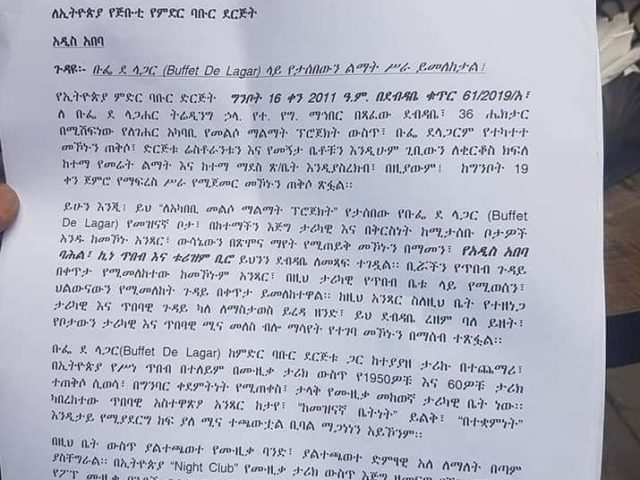 ለኢትዮጵያ የጅቡቲ የምድር ባቡር ደርጅት
አዲስ አበባ
ጉዳዩ፡- ቡፌ ደ ላጋር (Buffet De Lagar) ላይ የታሰበውን ልማት ሥራ ይመለከታል፤
የኢትዮጵያ ምድር ባቡር ድርጅት ግንቦት 16 ቀን 2011 ዓ.ም. በደብዳቤ ቁጥር 61/2019/እ፤
ለ ቡፌ ደ ላጋሐር ትሬዲንግ ኃላ. የተ. የግ. ማኅበር በጻፈው ደብዳቤ፣ 36 ሔክታር
በሚሸፍነው የለገሀር አካባቢ የመልሶ ማልማት ፕሮጀክት ውስጥ፣ ቡፌ ደላጋርም የተካተተ
መኾኑን ጠቅሶ፣ ድርጅቱ ሬስቶራንቱን እና የመኝታ ቤቶቹን እንዲሁም ጊቢውን ለቂርቆስ ክፍለ
ከተማ የመሬት ልማት እና ከተማ ማደስ ጽ/ቤት እንዲያስረክብ፣ በዚያውም፤ ከግንቦት 19
ቀን ጀምሮ የማፍረስ ሥራ የሚጀመር መኾኑን ጠቅሶ ጽፏል።
ይሁን እንጂ፤ ይህ “ለአካባቢ መልሶ ማልማት ፕሮጀክት” የታሰበው የቡፌ ደ ላጋር (Buffet
De Lagar) የመዝናኛ ቦታ፣ በከተማችን እጅግ ታሪካዊ እና በቅርስነት ከሚታሰቡ ቦታዎች
አንዱ ከመኾኑ አንጻር፣ ውሳኔውን በጽሞና ማየት የሚጠይቅ መኾኑን በማመን፣ የአዲስ አበባ
ባሕል፣ ኪነ ጥበብ እና ቱሪዝም ቢሮ ይህንን ደብዳቤ ለመጻፍ ተገዷል። ቢሯችን የጥበብ ጉዳይ
በቀጥታ የሚመለከተው ከመኾኑም አንጻር፣ በዚህ ታሪካዊ የጥበብ ቤቱ ላይ የሚወሰን፣
ህልውናውን የሚመለከት ጉዳይ በቀጥታ ይመለከተዋል። ከዚህ አንጻር ስለዚህ ቤት የተዘነጋ
ታሪካዊ እና ጥበባዊ ጉዳይ ካለ ለማስታወስ ይረዳ ዘንድ፣ ይህ ደብዳቤ ረዘም ባለ ይዘት፣
የቦታውን ታሪካዊ እና ጥበባዊ ሚና መለስ ብሎ ማሳየት የተገባ መኾኑን በማሰብ ተጽፏል።
ቡፌ ደ ላጋር(Buffet De Lagar) ከምድር ባቡር ደርጅቱ ጋር ከተያያዘ ታሪኩ በተጨማሪ፣
በኢትዮጵያ የሥነ ጥበብ በተለይም በሙዚቃ ታሪክ ውስጥ የ1950ዎቹ እና 60ዎቹ ታሪክ
ተጠቅሶ ሲወሳ፣ በግንባር ቀደምትነት የሚጠቀስ፣ ታላቅ የሙዚቃ መከወኛ ታሪካዊ ቤት ነው።
ካበረከተው ጥበባዊ አስተዋጽዖ አንጻር ከታየ፣ “ከመዝናኛ ቤትነት” ይልቅ፣ “በተቋምነት”
እንዲታይ የሚያደርግ ከፍ ያለ ሚና ተጫውቷል ቢባል ማጋነንን አይኾንም።
በዚህ ቤት ውስጥ ያልተጫወተ የሙዚቃ ባንድ፣ ያልተጫወተ ድምፃዊ አለ ለማለት በጣም
ያስቸግራል። በኢትዮጵያ “Night Club” የሙዚቃ ታሪክ ውስጥ እጅግ